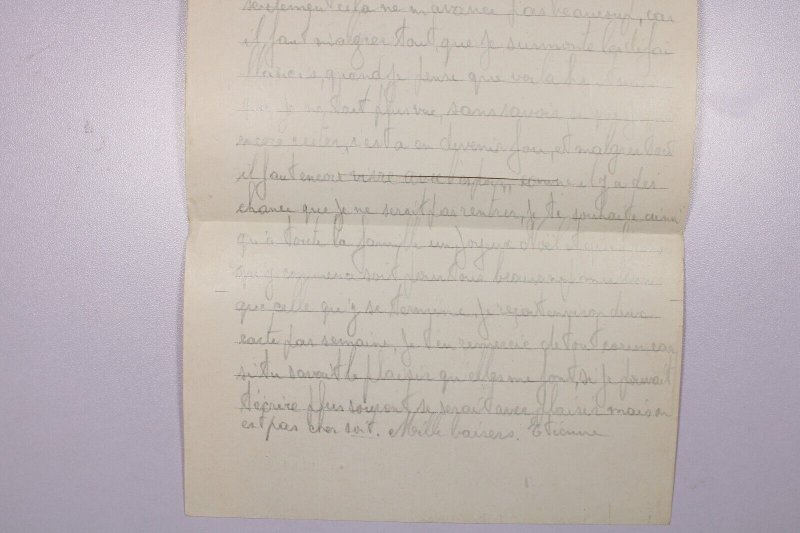 seulement cela ne m'avance pas beaucoup, car
il faut malgrer tout que je surmonte
quand je pense que voila
plus vue, sans savoir
encore rester, s'est a en devenir fou, et malgrer tout
il faut encore vivre avec l'espoir, comme il y a des
chance que je ne serait pas rentrer, je te souhaite ainsi
qu'a toute la famille un joyeux Noël
qui commence soit pour tous beaucoup
que celle qu'y se termine, je reçoit environ deux
carte par semaine, je t'en remercie de tout coeur car
si tu savait le plaisir qu'elles me font, si je pouvait
t'écrire plus souvent se serait avec plaisir mais on
est pas cher soit. Mille baisers. Etienne